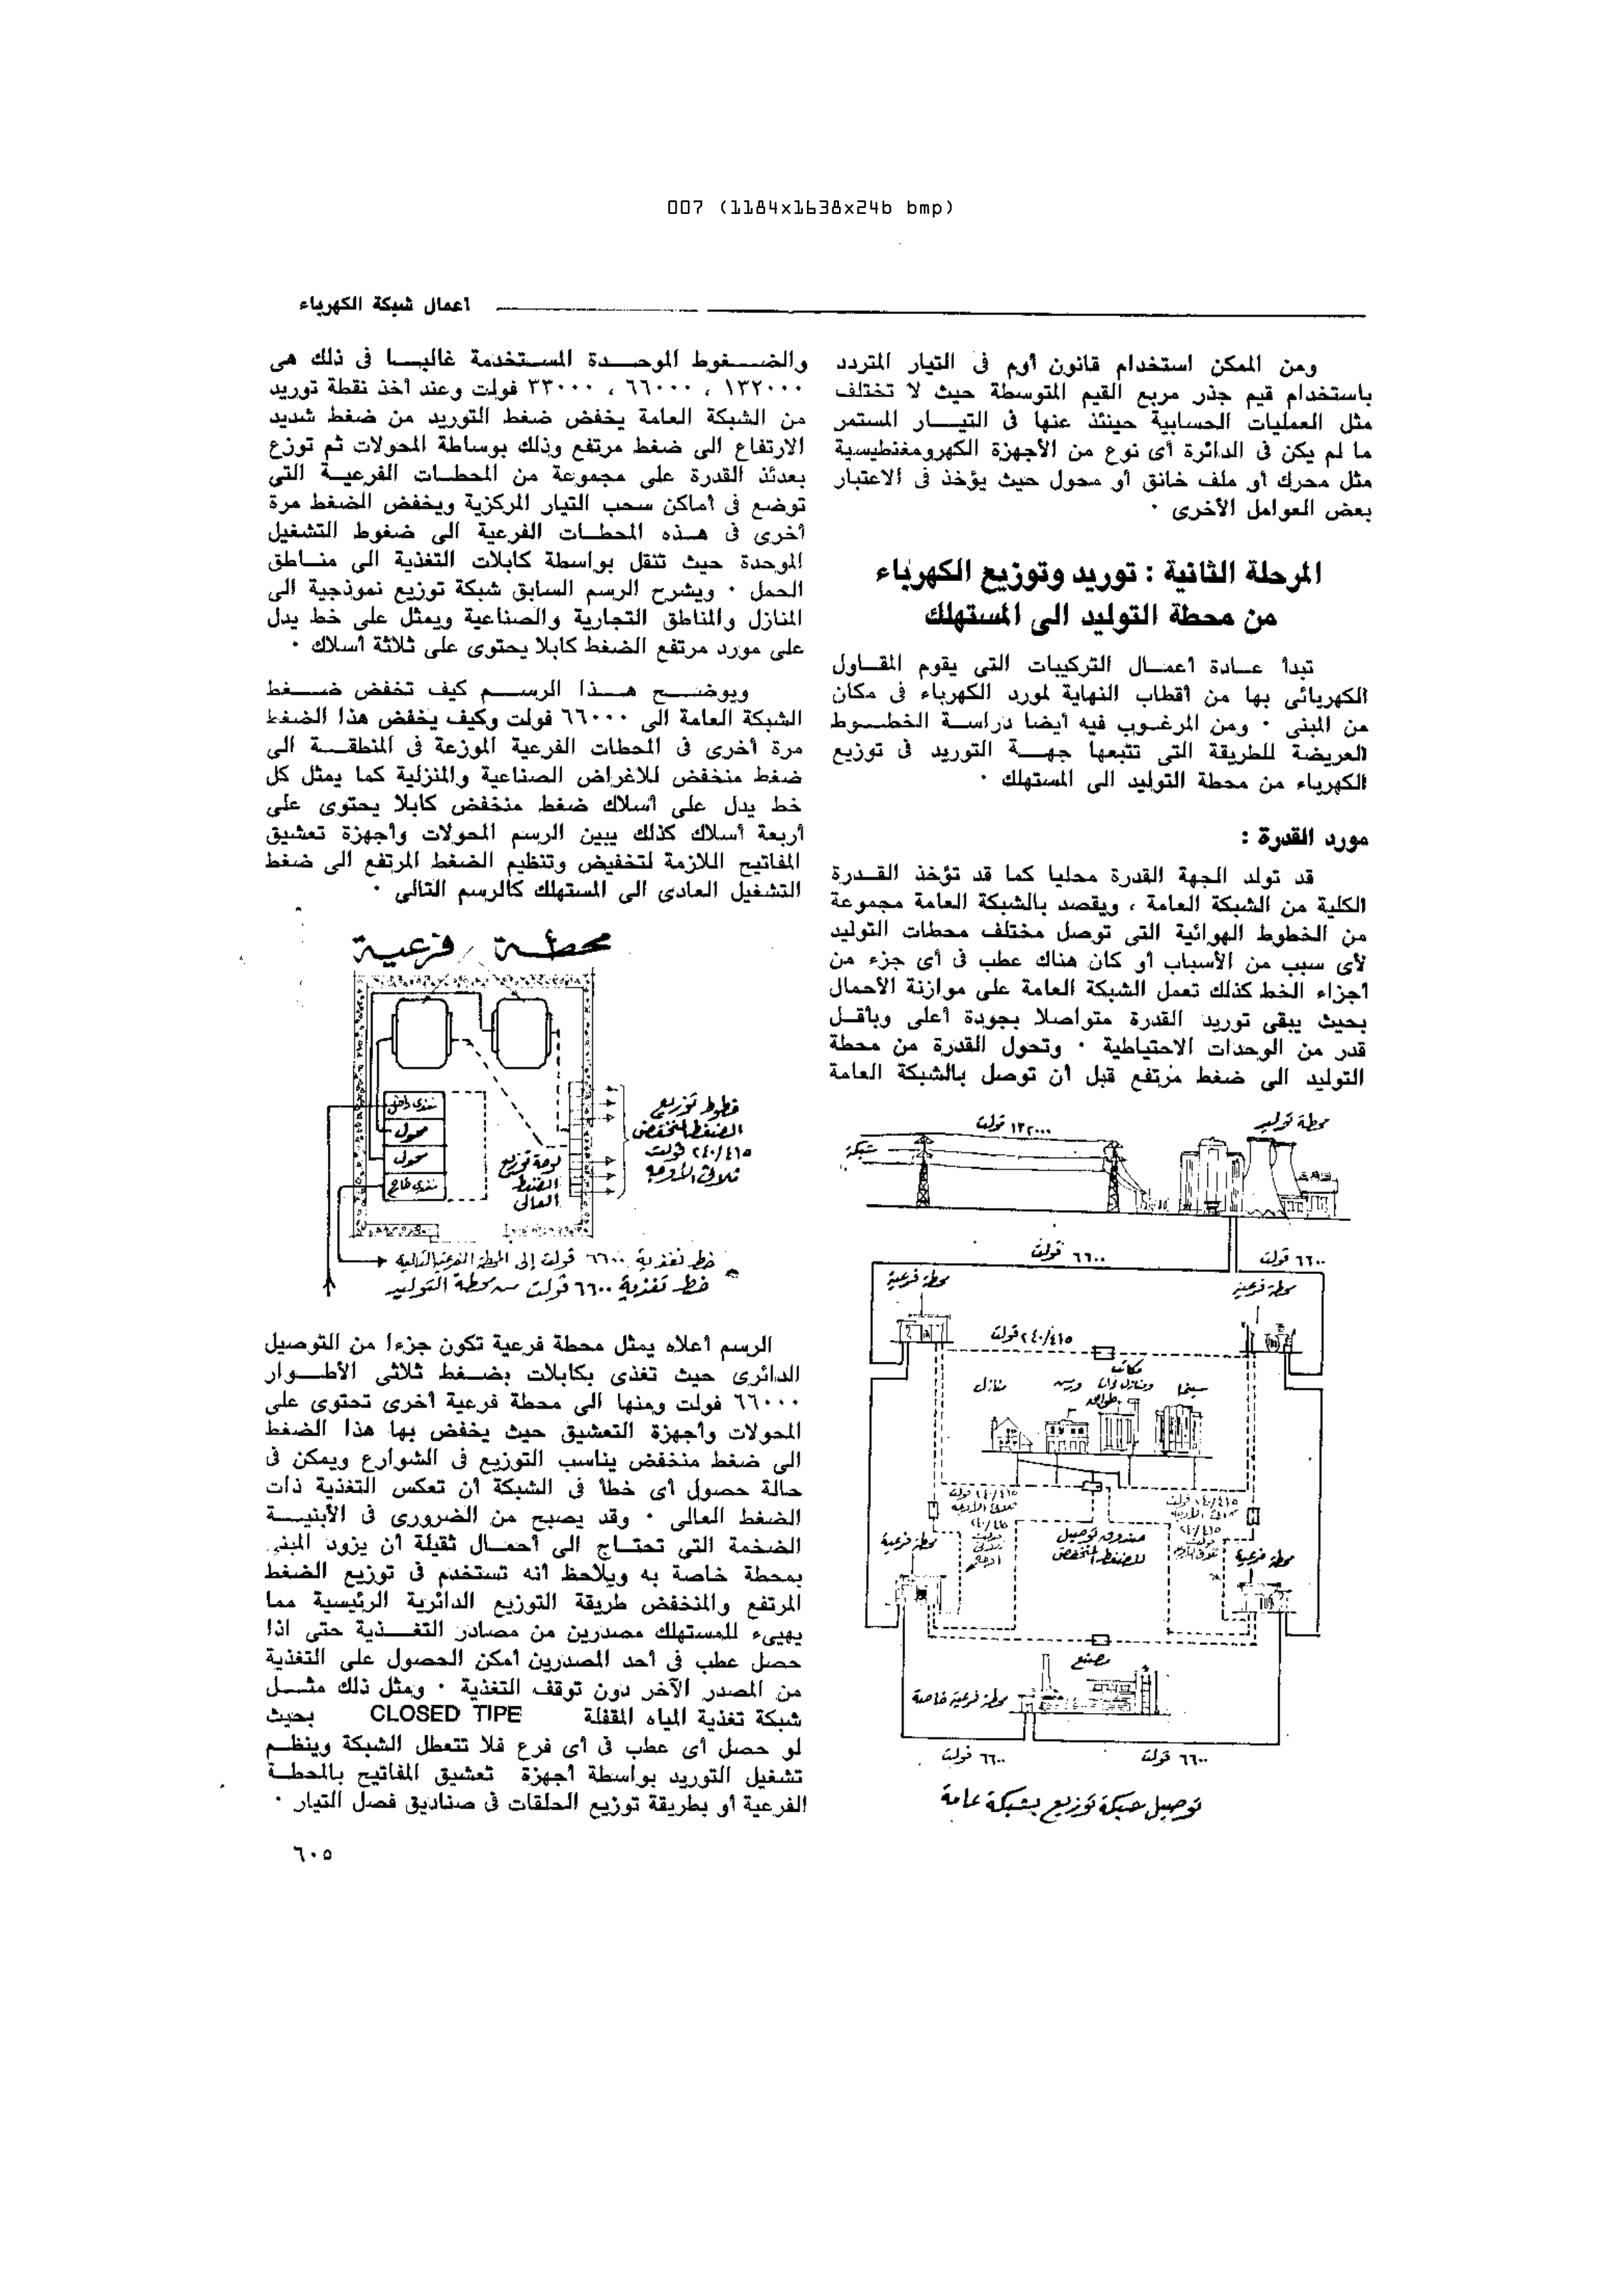 007 (1184x1638x24b bmp)
أعمال شبكة الكهرباء
ومن الممكن استخدام قانون أوم فى التيار المتردد
باستخدام قيم جذر مربع القيم المتوسطة حيث لا تختلف
مثل العمليات الحسابية حينئذ عنها فى التيـــار المستمر
ما لم يكن فى الدائرة أى نوع من الأجهزة الكهرومغنطيسية
مثل محرك أو ملف خانق أو محول حيث يؤخذ فى الاعتبار
بعض العوامل الأخرى ٠
المرحلة الثانية : توريد وتوزيع الكهرباء
من محطة التوليد الى المستهلك
تبدأ عــادة أعمــال التركيبات التى يقوم المقــاول
الكهربائى بها من أقطاب النهاية لمورد الكهرباء فى مكان
من المبنى ٠ ومن المرغـوب فيه أيضا دراســة الخطــوط
العريضة للطريقة التى تتبعها جهــة التوريد فى توزيع
الكهرباء من محطة التوليد الى المستهلك ٠
مورد القدرة :
قد تولد الجهة القدرة محليا كما قد تؤخذ القــدرة
الكلية من الشبكة العامة ، ويقصد بالشبكة العامة مجموعة
من الخطوط الهوائية التى توصل مختلف محطات التوليد
لأى سبب من الأسباب أو كان هناك عطب فى أى جزء من
أجزاء الخط كذلك تعمل الشبكة العامة على موازنة الأحمال
بحيث يبقى توريد القدرة متواصلا بجودة أعلى وبأقــل
قدر من الوحدات الاحتياطية ٠ وتحول القدرة من محطة
التوليد الى ضغط مرتفع قبل أن توصل بالشبكة العامة
محطة توليد
١٣٢٠٠٠ فولت
شبكة
٦٦٠٠ فولت
٦٦٠٠ فولت
محطة فرعية
محطة فرعية
٢٤٠/٤١٥ فولت
مكاتب
سينما
ورش
منازل
صندوق توصيل
للضغط المنخفض
محطة فرعية
محطة فرعية
مصنع
محطة فرعية خاصة
٦٦٠٠ فولت
٦٦٠٠ فولت
توصيل شبكة توزيع بشبكة عامة
والضــغوط الموحــدة المســتخدمة غالبــا فى ذلك هى
١٣٢٠٠٠ ، ٦٦٠٠٠ ، ٣٣٠٠٠ فولت وعند أخذ نقطة توريد
من الشبكة العامة يخفض ضغط التوريد من ضغط شديد
الارتفاع الى ضغط مرتفع وذلك بوساطة المحولات ثم توزع
بعدئذ القدرة على مجموعة من المحطــات الفرعيــة التى
توضع فى أماكن سحب التيار المركزية ويخفض الضغط مرة
أخرى فى هــذه المحطــات الفرعية الى ضغوط التشغيل
الموحدة حيث تنقل بواسطة كابلات التغذية الى منــاطق
الحمل ٠ ويشرح الرسم السابق شبكة توزيع نموذجية الى
المنازل والمناطق التجارية والصناعية ويمثل على خط يدل
على مورد مرتفع الضغط كابلا يحتوى على ثلاثة أسلاك ٠
ويوضــح هــذا الرســم كيف تخفض ضــغط
الشبكة العامة الى ٦٦٠٠٠ فولت وكيف يخفض هذا الضغط
مرة أخرى فى المحطات الفرعية الموزعة فى المنطقــة الى
ضغط منخفض للاغراض الصناعية والمنزلية كما يمثل كل
خط يدل على أسلاك ضغط منخفض كابلا يحتوى على
أربعة أسلاك كذلك يبين الرسم المحولات وأجهزة تعشيق
المفاتيح اللازمة لتخفيض وتنظيم الضغط المرتفع الى ضغط
التشغيل العادى الى المستهلك كالرسم التالى ٠
محطــة فرعيــة
مغذى داخلى
محول
محول
مغذى خارج
لوحة توزيع
الضغط
العالى
خطوط توزيع
الضغط المنخفض
٢٤٠/٤١٥ فولت
ثلاثى الأوجه
خط تغذية ٦٦٠٠ فولت إلى المحطة الفرعية التالية
خط تغذية ٦٦٠٠ فولت من محطة التوليد
الرسم أعلاه يمثل محطة فرعية تكون جزءا من التوصيل
الدائرى حيث تغذى بكابلات بضــغط ثلاثى الأطــوار
٦٦٠٠٠ فولت ومنها الى محطة فرعية أخرى تحتوى على
المحولات وأجهزة التعشيق حيث يخفض بها هذا الضغط
الى ضغط منخفض يناسب التوزيع فى الشوارع ويمكن فى
حالة حصول أى خطأ فى الشبكة أن تعكس التغذية ذات
الضغط العالى ٠ وقد يصبح من الضرورى فى الأبنيــة
الضخمة التى تحتــاج الى أحمــال ثقيلة أن يزود المبنى
بمحطة خاصة به ويلاحظ أنه تستخدم فى توزيع الضغط
المرتفع والمنخفض طريقة التوزيع الدائرية الرئيسية مما
يهيىء للمستهلك مصدرين من مصادر التغــذية حتى اذا
حصل عطب فى أحد المصدرين أمكن الحصول على التغذية
من المصدر الآخر دون توقف التغذية ٠ ومثل ذلك مثــل
شبكة تغذية المياه المقفلة CLOSED TIPE بحيث
لو حصل أى عطب فى أى فرع فلا تتعطل الشبكة وينظــم
تشغيل التوريد بواسطة أجهزة تعشيق المفاتيح بالمحطــة
الفرعية أو بطريقة توزيع الحلقات فى صناديق فصل التيار ٠
٦٠٥